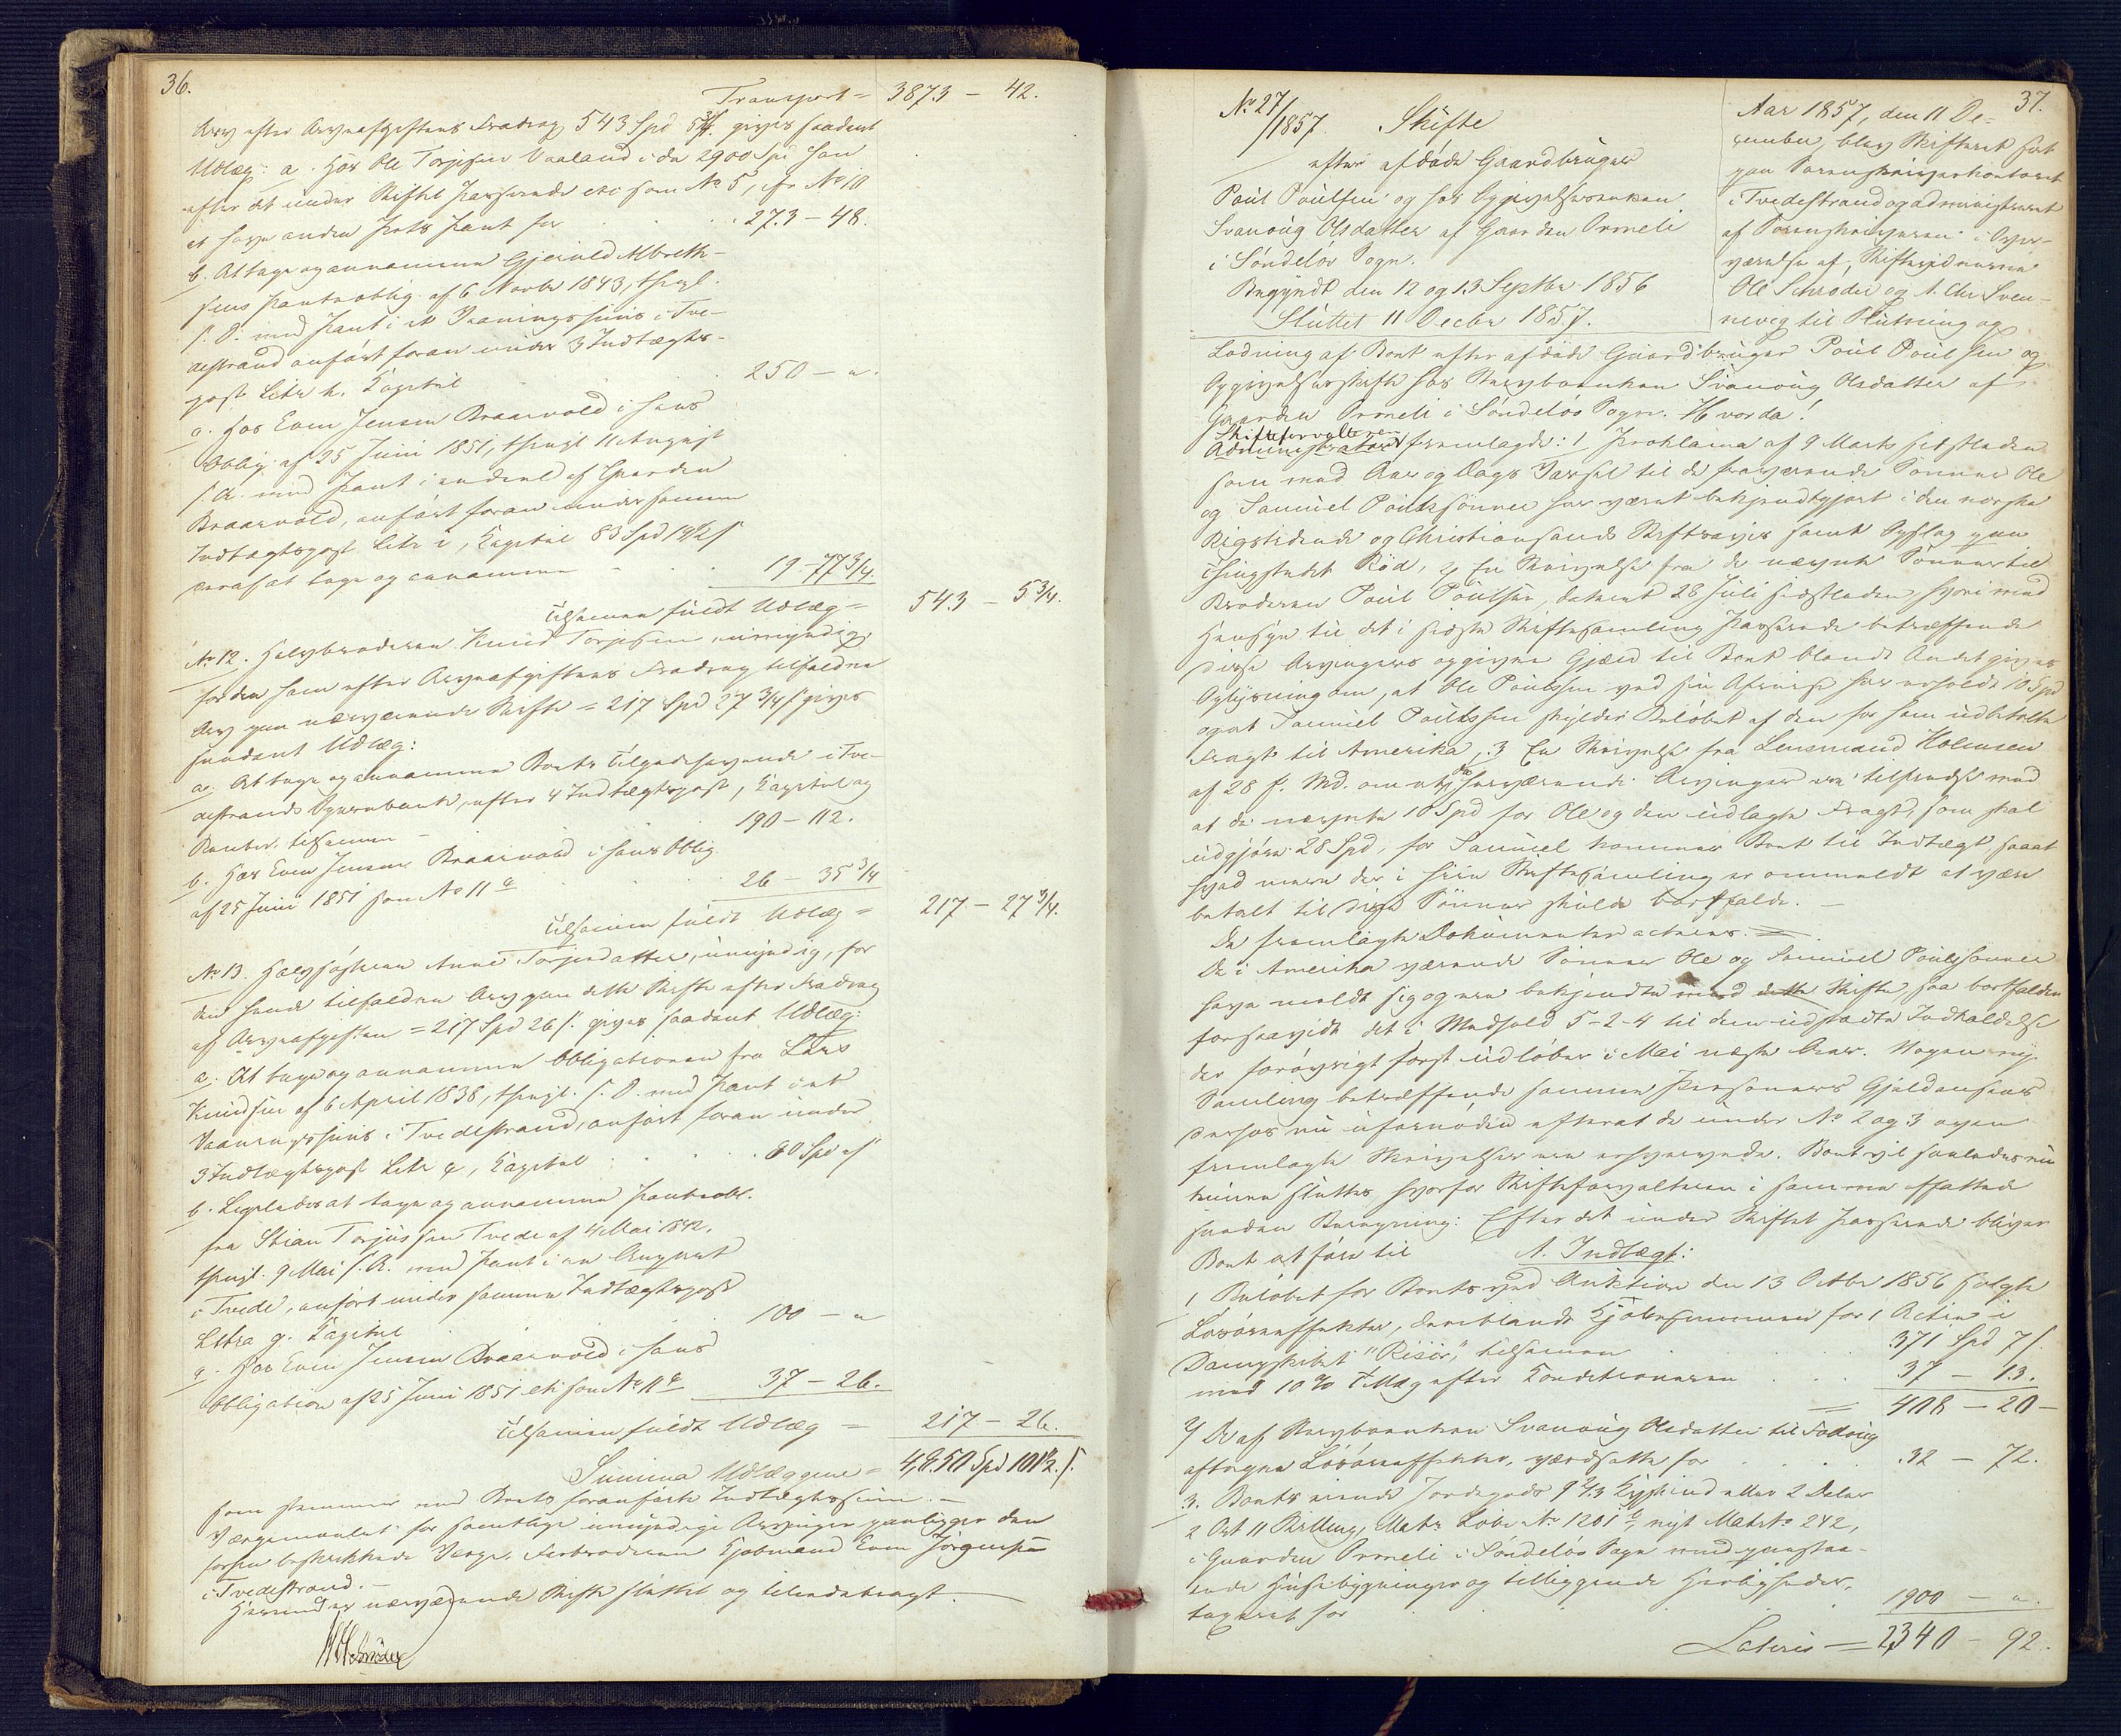 36.
Transport = 3873 - 42.
Arv efter Arveafgiftens Fradrag 543 Spd 5¾ gives saadant
Udlæg: a. Hos Ole Torjesen Vaaland i de 2900 Spd han
efter det under Skiftet Passerede etc som No 5, cfr No 10
at have anden Prts Pant for . . . 273 - 48.
b. At tage og annamme Gjeruld Albreth-
sens Panteoblig. af 6 Novbr 1843, thinl.
s. D. med Pant i et Vaaningshuus i Tve-
destrand anført foran under 3 Indtægts-
post Litr h. Capital . . 250 - "
c. Hos Even Jensen Braarvold i hans
Oblig. af 25 Juni 1851, thingl 11 August
s. A. med Pant i endeel af Gaarden
Braarvold, anført foran under samme
Indtægtspost Litr i, Capital 83 Spd 19½ s
deraf at tage og annamme . . 19 - 77¾.
Tilsammen fuldt Udlæg = 543 - 5¾.
No 12. Halvbroderen Knud Torjesen, umyndig,
for den ham efter Arveafgiftens Fradrag tilfaldne
Arv paa nærværende Skifte = 217 Spd 27¾ s gives
saadant Udlæg:
a. At tage og annamme Boets Tilgodehavende i Tve-
destrands Sparebank, efter 4 Indtægtspost, Capital og
Renter, tilsammen - 190 - 112.
b. Hos Even Jensen Braarvold i hans Oblig.
af 25 Juni 1851 som No 11 c . . 26 - 35¾
Tilsammen fuldt Udlæg = 217 - 27¾.
No 13. Halvsøsteren Anne Torjesdatter, umyndig, for
den hende tilfaldne Arv paa dette Skifte efter Fradrag
af Arveafgiften = 217 Spd 26 s. gives saadant Udlæg:
a. At tage og annamme Obligationen fra Lars
Knudsen af 6 April 1838, thingl. s. D. med Pant i et
Vaaningshuus i Tvedestrand, anført foran under
3 Indtægtspost Litr e, Capital . . . 80 Spd " s
b. Ligeledes at tage og annamme Panteobl.
fra Stian Torjussen Tvede af 4 Mai 1842,
thingl. 9 Mai s. A. med Pant i en
i Tvede, anført under samme Indtægtspost
Litra g. Capital . . 100 - "
c. Hos Even Jensen Braarvold i hans
Obligation af 25 Juni 1851 etc som No 11 c 37 - 26.
Tilsammen fuldt Udlæg = 217 - 26.
Summa Udlæggene = 4,850 Spd 101½ s.
som stemmer med Boets foranførte Indtægtssum. -
Værgemaalet for samtlige umyndige Arvinger paaligger den
forhen beskikkede Værge, Farbroderen Kjøbmand Even Jørgensen
i Tvedestrand. -
Hermed er nærværende Skifte sluttet og tilendebragt. -
37.
No 27/1857. Skifte
efter afdøde Gaardbruger
Poul Poulsen og hos Opgivelsesenken
Svanoug Olsdatter af Gaarden Ormeli
i Søndeløs Sogn.
Begyndt den 12 og 13 Septbr 1856
Sluttet 11 Decbr 1857.
Aar 1857, den 11 De-
cember, blev Skifteret sat
paa Sorenskriverkontoret
i Tvedestrand og administreret
af Sorenskriveren i Over-
værelse af Skiftevidnerne
Ole Schrøder og A. Chr Sven-
neveg til Slutning og
Lodning af Boet efter afdøde Gaardbruger Poul Poulsen og
Opgivelsesskifte hos Stervboenken Svanoug Olsdatter af
Gaarden Ormeli i Søndeløs Sogn. Hvorda!
Skifteforvalteren
Administrator fremlagde: 1, Proklama af 9 Marts sidstleden
som med Aar og Dags Varsel til de fraværende Sønner Ole
og Samuel Poulssønner har været bekjendtgjort i den norske
Rigstidende og Christiansands Stiftsavis samt Opslag paa
Thingstedet Röd, 2, En Skrivelse fra de nævnte Sønner til
Broderen Poul Poulsen, dateret 28 Juli sidstleden hvori med
Hensyn til det i sidste Skiftesamling Passerede betræffende
disse Arvingers opgivne Gjæld til Boet blandt Andet gives
Oplysning om, at Ole Poulssen ved sin Afreise har erholdt 10 Spd
og at Samuel Poulssen skylder Beløbet af den for ham udbetalte
Fragt til Amerika, 3, En Skrivelse fra Lensmand Holmsen
af 28 f. Md. om at de herværende Arvinger ere tilfreds med
at de nævnte 10 Spd for Ole og den udlagte Fragt, som skal
udgjøre 28 Spd, for Samuel kommer Boet til Indtægt, saa at
hvad mere der i hiin Skiftesamling er ommeldt at være
betalt til disse Sønner skulde bortfalde. -
De fremlagte Dokumenter acteres. =
De i Amerika værende Sønner Ole og Samuel Poulssønner
have meldt sig og ere bekjendte med dette Skifte, saa bortfalder
forsaavidt det i Medhold 5-2-4 til dem udstædte Indkaldelse
der forøvrigt først udløber i Mai næste Aar. Nogen ny
Samling betræffende samme Personers Gjældansvar
derhos nu ufornøden efterat de under No 2 og 3 oven
fremlagte Skrivelser ere erhvervede. Boet vil saaledes nu
kunne sluttes, hvorfor Skifteforvalteren i samme affattede
saadan Beregning: Efter det under Skiftet Passerede bliver
Boet at føre til A. Indtægt:
1, Beløbet for Boets ved Auktion den 13 Octbr 1856 solgte
Løsøreeffekter, deriblandt Kjøbesummen for 1 Actie i
Dampskibet "Risør," tilsammen . . . 371 Spd 7 s.
med 10 % Tillæg efter Conditionerne . . . 37 - 13.
= 408 - 20 -
2, De af Stervboenken Svanoug Olsdatter til Fodring
aftagne Løsøreeffekter, værdsatte for . . . . 32 - 72.
3. Boets eiende Jordegods 9 2/3 Kalvskind eller 2 Daler
2 Ort 11 Skilling, Matr. Løbe No 1201 c, nyt Matr No 242,
i Gaarden Ormeli i Søndeløs Sogn med paastaa-
ende Huusebygninger og tilliggende Herligheder,
taxeret for . . . . 1900 - "
Lateris = 2340 - 92.